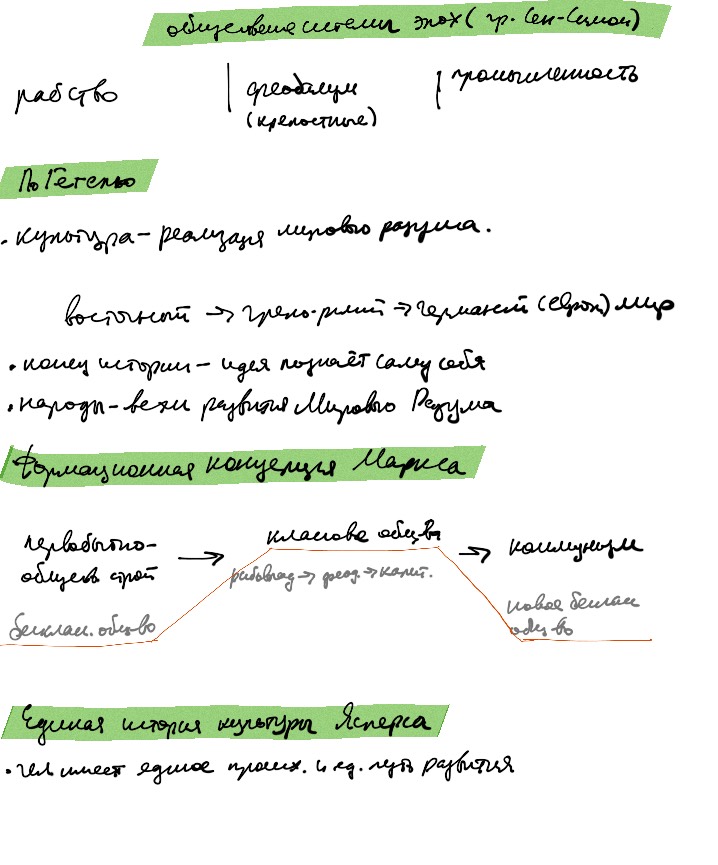 обществене системы эпох (гр. Сен-Симон)
рабство | феодализм | промышленность
(крепостные)
По Гегелю
• культура – реализация мирового разума.
восточный → греко-римский → германский (европ) мир
• конец истории – идея познаёт саму себя
• народы – вехи развития Мирового Разума
Формационная концепция Маркса
первобытно-обществ строй → класовое общ-во → коммунизм
рабовлад → феод. → капит.
бесклас. общ-во
новое бесклас
общ-во
Единая история культуры Ясперса
• чел имеет единое происх. и ед. путь развития